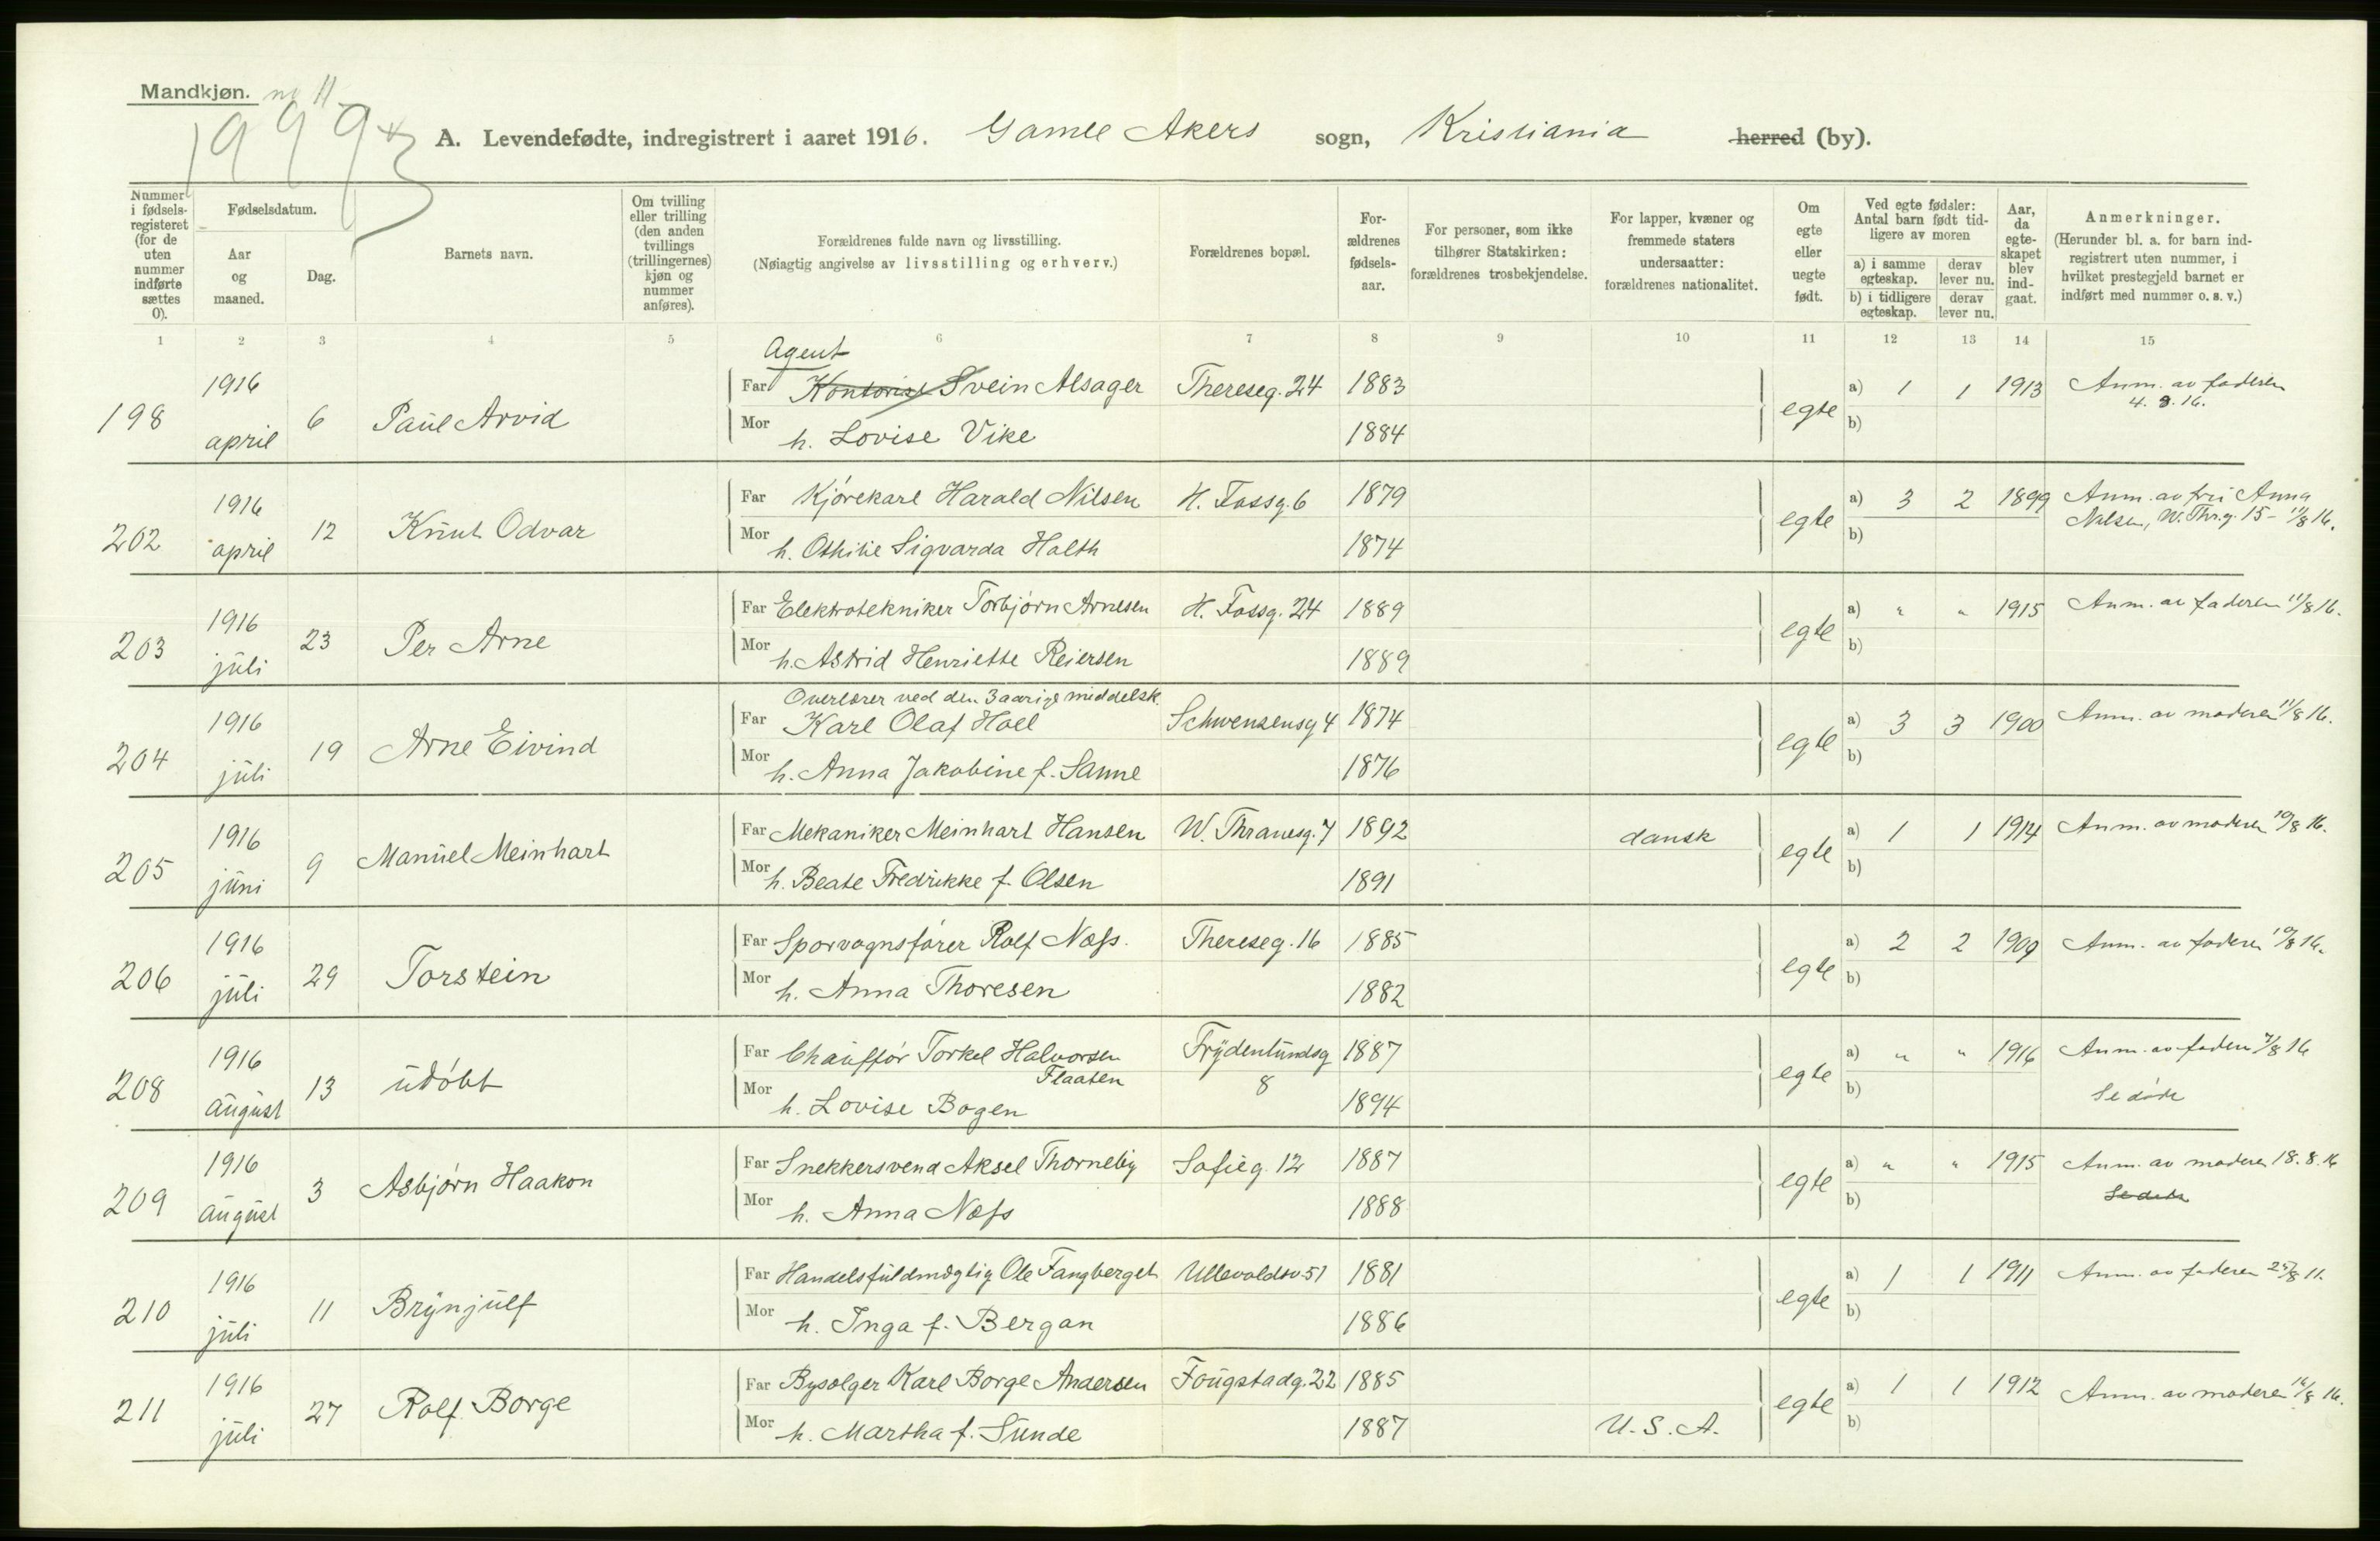 Mandkjøn. no 11
1999
A. Levendefødte, indregistrert i aaret 1916. Gamle Akers sogn, Kristiania herred (by).
Nummer i fødsels-registeret (for de uten nummer indførte sættes 0).
Fødselsdatum.
Aar og maaned.
Dag.
Barnets navn.
Om tvilling eller trilling (den anden tvillings (trillingernes) kjøn og nummer anføres).
Forældrenes fulde navn og livsstilling.
(Nøiagtig angivelse av livsstilling og erhverv.)
Forældrenes bopæl.
For-ældrenes fødsels-aar.
For personer, som ikke tilhører Statskirken: forældrenes trosbekjendelse.
For lapper, kvæner og fremmede staters undersaatter: forældrenes nationalitet.
Om egte eller uegte født.
Ved egte fødsler: Antal barn født tid-ligere av moren
a) i samme egteskap. derav lever nu.
b) i tidligere egteskap. derav lever nu.
Aar, da egte-skapet blev ind-gaat.
Anmerkninger.
(Herunder bl. a. for barn ind-registrert uten nummer, i hvilket prestegjeld barnet er indført med nummer o. s. v.)
1 2 3 4 5 6 7 8 9 10 11 12 13 14 15
Agent
198 1916 april 6 Paul Arvid Far Kontorist Svein Alsager Thereseg. 24 1883 egte a) 1 1 1913 Anm. av faderen 4. 8. 16.
Mor h. Lovise Vike 1884 b)
202 1916 april 12 Knut Odvar Far Kjørekarl Harald Nilsen H. Fossg. 6 1879 egte a) 3 2 1899 Anm. av fru Anna Nilsen, W. Thr.g. 15 - 11/8 16.
Mor h. Othilie Sigvarda Halth 1874 b)
203 1916 juli 23 Per Arne Far Elektrotekniker Torbjørn Arnesen H. Fossg. 24 1889 egte a) " " 1915 Anm. av faderen 11/8 16.
Mor h. Astrid Henriette Reiersen 1889 b)
Overlærer ved den 3 aarige middelsk.
204 1916 juli 19 Arne Eivind Far Karl Olaf Hoel Schwensensg 4 1874 egte a) 3 3 1900 Anm. av moderen 11/8 16.
Mor h. Anna Jakobine f. Sanne 1876 b)
205 1916 juni 9 Manuel Meinhart Far Mekaniker Meinhart Hansen W. Thranesg. 7 1892 dansk egte a) 1 1 1914 Anm. av moderen 10/8 16.
Mor h. Beate Fredrikke f. Olsen 1891 b)
206 1916 juli 29 Torstein Far Sporvognsfører Rolf Næss. Thereseg. 16 1885 egte a) 2 2 1909 Anm. av faderen 10/8 16.
Mor h. Anna Thoresen 1882 b)
208 1916 august 13 udøbt Far Chauffør Torkel Halvorsen Flaaten Frydenlundsg 8 1887 egte a) " " 1916 Anm. av faderen /8 16
Mor h. Lovise Bogen 1894 b) Se døde
209 1916 august 3 Asbjørn Haakon Far Snekkersvend Aksel Thorneby Sofieg. 12 1887 egte a) " " 1915 Anm. av moderen 18. 8. 16
Mor h. Anna Næss 1888 b) Se døde
210 1916 juli 11 Brynjulf Far Handelsfuldmægtig Ole Fangberget Ullevoldsv. 51 1881 egte a) 1 1 1911 Anm. av faderen 25/8 11.
Mor h. Inga f. Bergan 1886 b)
211 1916 juli 27 Rolf Borge Far Bysælger Karl Borge Andersen Fougstadg. 22 1885 egte a) 1 1 1912 Anm. av moderen 16/8 16.
Mor h. Martha f. Sunde 1887 U. S. A. b)